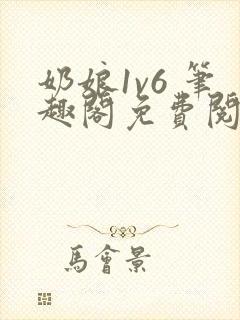 奶娘1v6 筆
趣閣免費閱
馬會景